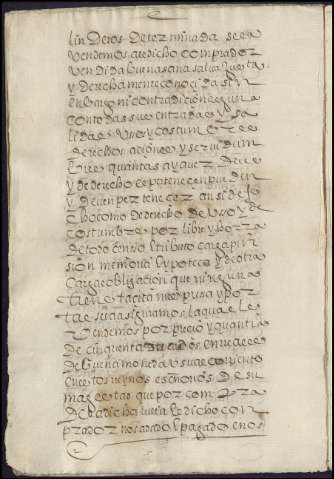 linderos determinada se la
vendemos al dicho comprador
vendida buena sana salva cierta
y derechamente conocida sin
enbargo ni contradicion alguna
con todas sus entradas y sa
lidas usos y costumbres
derechos aciones y servidum
bres quantas a y aver deve
y de derecho le pertenecen pueden
y deven pertenecer ansi de fe
cho como de derecho de uso y de
costumbre por libre y horra
de todo censo tributo carga pin
sion memoria ypoteca y de otra
carga obligacion que ninguna
tiene tacita ni espresa y por
tal se la aseguramos la qual le
vendemos por precio y quantia
de cinquenta ducados en reales
de buena moneda usual corriente
en estos reynos e señorios de su
magestad que por compra
de la dicha el dicho con
prador nos a dado e pagado en os